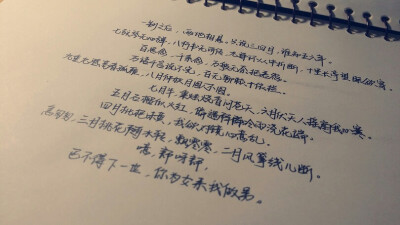 一别之后，两地相悬。只说三四月，谁知五六年。
七弦琴无心弹，八行书无可传，九连环从中折断，十里长亭望眼欲穿。
百思想，千系念，万般无奈把君怨。
万语千言说不完，百无聊赖十依栏。
重九登高看孤雁，八月仲秋月圆人不圆。
七月半，秉烛烧香问苍天，六月伏天人人摇扇我心寒。
五月石榴似火红，偏遇阵阵冷雨浇花端。
四月枇杷未黄，我欲对镜心意乱。
急匆匆，三月桃花随水转，飘零零，二月风筝线儿断。
噫，郎呀郎，
巴不得下一世，你为女来我做男。